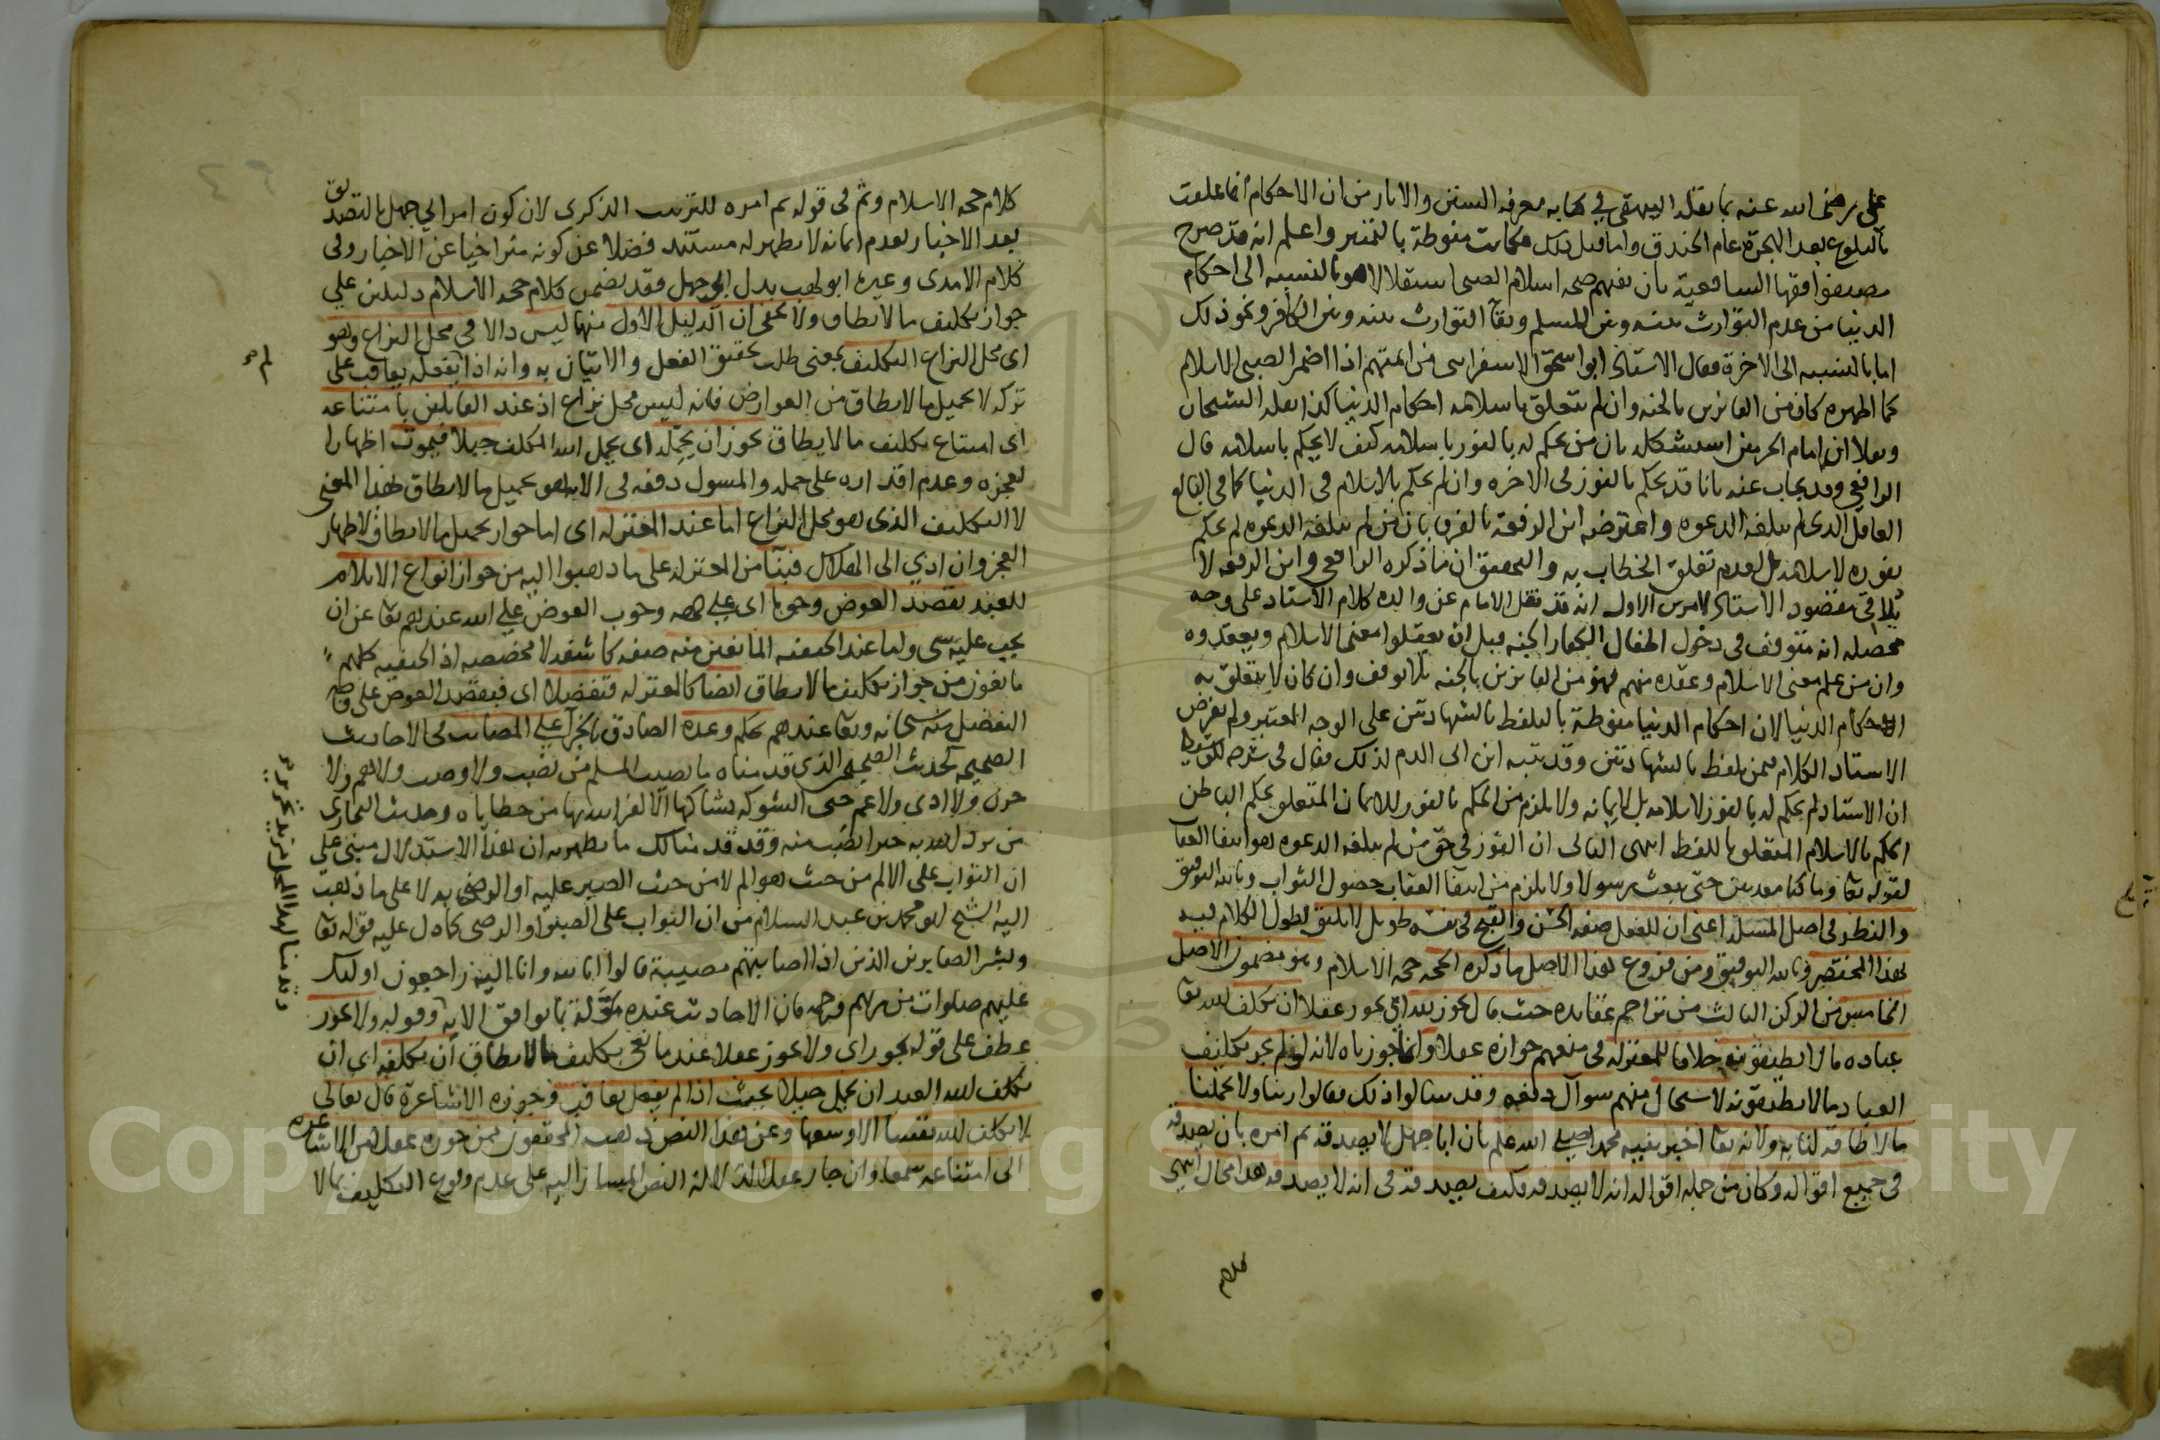 على رضى الله عنه بما نقله البيهقى في كتابه معرفة السنن والاثار من ان الاحكام انما علقت
بالبلوغ بعد الهجرة عام الخندق واما قبل ذلك فكانت منوطة بالتمييز واعلم انه قد صرح
فقها الشافعية بان نفيهم صحه اسلام الصبى استقلالا هو بالنسبه الى احكام
الدنيا من عدم التوارث بينه وبين المسلم وبقا التوارث بينه وبين الكافر ونحو ذلك
اما بالنسبه الى الاخرة فقال الاستاذ ابو اسحق الاسفراينى من ائمتهم اذا اضمر الصبى الاسلام
كما اظهره كان من الفائزين بالجنه وان لم تتعلق باسلامه احكام الدنيا كذا نقله الشيخان
ونقلا ان امام الحرمين استشكله بان من يحكم له بالفوز باسلامه كيف لا يحكم باسلامه قال
الرافعى وقد يجاب عنه بانا قد نحكم بالفوز فى الاخره وان لم نحكم بالاسلام فى الدنيا كما فى البالغ
العاقل الذى لم تبلغه الدعوه واعترضه ابن الرفعه بالفرق بان من لم تبلغه الدعوه لم نحكم
بفوزه لاسلامه بل لعدم تعلق الخطاب به والتحقيق ان ما ذكره الرافعى وابن الرفعه لا
يلاقى مقصود الاستاذ لامرين الاول انه قد نقل الامام عن والده كلام الاستاذ على وجه
محصله انه متوقف فى دخول اطفال الكفار الجنه قبل ان يعقلوا معنى الاسلام ويعتقدوه
وان من علم معنى الاسلام وعقده منهم فهو من الفائزين بالجنه بلا توقف وان كان لا يتعلق به
احكام الدنيا لان احكام الدنيا منوطة بالتلفظ بالشهادتين على الوجه المعتبر ولم يفرض
الاستاذ الكلام فيمن تلفظ بالشهادتين وقد نبه ابن ابى الدم لذلك فقال فى شرحه للوسيط
ان الاستاذ لم يحكم له بالفوز لاسلامه بل لايمانه ولا يلزم من الحكم بالفوز للايمان المتعلق بحكم الباطن
الحكم بالاسلام المتعلق باللفظ انتهى الثانى ان الفوز فى حق من لم تبلغه الدعوه هو انتفا العقاب
لقوله تعا وما كنا معذبين حتى نبعث رسولا ولا يلزم من انتفا العقاب حصول الثواب وبالله التوفيق
والنظر فى اصل المسئله اعنى ان للفعل صفه الحسن والقبح فى نفسه طويل لا يليق بطول الكلام فيه
هذا المختصر وبالله التوفيق ومن فروع هذا الاصل ما ذكره الحجه حجه الاسلام وهو مضمون الاصل
الخامس من الركن الثالث من تراجم عقائده حيث قال يجوز لله اى يجوز عقلا ان يكلف الله تعا
عباده ما لا يطيقونه خلافا للمعتزله فى منعهم جوازه عقلا وانما جوزناه لانه لو لم يجز تكليف
العباد ما لا يطيقونه لاستحال منهم سوال دفعه وقد سالوا ذلك فقالوا ربنا ولا تحملنا
ما لا طاقه لنا به ولانه تعا اخبر نبيه محمدا صلى الله عليه بان ابا جهل لا يصدقه ثم امره بان يصدقه
فى جميع اقواله وكان من جمله اقواله انه لا يصدقه فكيف يصدقه فى انه لا يصدقه هذا محال انتهى
كلام
كلام حجه الاسلام وثم فى قوله ثم امره للترتيب الذكرى لان كون امر ابى جهل بالتصديق
بعد الاخبار بعدم ايمانه لا يظهر له مستند فضلا عن كونه متراخيا عن الاخبار وفى
كلام الامدى وغيره ابو لهب بدل ابى جهل فقد تضمن كلام حجه الاسلام دليلين على
جواز تكليف ما لا يطاق ولا يخفى ان الدليل الاول منهما ليس دالا فى محل النزاع وهو
اى محل النزاع التكليف بمعنى طلب تحقيق الفعل والاتيان به وانه اذا لم يفعله يعاقب على
تركه لا تحميل ما لا يطاق من العوارض فانه ليس محل نزاع اذ عند القايلين بامتناعه
اى امتناع تكليف ما لا يطاق يجوز ان يحمله اى يحمل الله المكلف جبلا فيموت اظهارا
لعجزه وعدم اقداره على حمله والمسول دفعه فى الايه هو تحميل ما لا يطاق بهذا المعنى
لا التكليف الذى هو محل النزاع اما عند المعتزله اى اما جواز تحميل ما لا يطاق لاظهار
العجز وان ادي الى الهلاك فبنآ من المعتزله على ما ذهبوا اليه من جواز انواع الايلام
للعبد بقصد العوض وجوبا اى على جهه وجوب العوض على الله عندهم تعا عن ان
يجب عليه شى واما عند الحنفيه المانعين منه صفه كاشفه لا مخصصه اذ الحنفيه كلهم
مانعون من جواز تكليف ما لا يطاق ايضا كالمعتزله فتفضلا اى فيقصد العوض على وجه
التفضل منه سبحانه وتعا عندهم بحكم وعده الصادق بالجزا على المصائب فى الاحاديث
الصحيحه كحديث الصحيحين الذى قدمناه ما يصيب المسلم من نصب ولا وصب ولا هم ولا
حزن ولا اذى ولا غم حتى الشوكه يشاكها الا كفر الله بها من خطاياه وحديث البخارى
من يرد الله به خيرا يصب منه وقد قدمنا لك ما يظهر به ان هذا الاستدلال مبنى على
ان الثواب على الالم من حيث هو الم لا من حيث الصبر عليه او الرضى به لا على ما ذهب
اليه الشيخ ابو محمد بن عبد السلام من ان الثواب على الصبر او الرضى كما دل عليه قوله تعا
وبشر الصابرين الذين اذا اصابتهم مصيبة قالوا انا لله وانا اليه راجعون اولئك
عليهم صلوات من ربهم ورحمه فان الاحاديث عنده مؤولة بما يوافق الايه وقوله ولا يجوز
عطف على قوله يجوز اى ولا يجوز عقلا عند مانعى تكليف ما لا يطاق ان يكلفه اى ان
يكلف الله العبد ان يحمل جبلا بحيث اذا لم يفعل يعاقب وجوزه الاشاعرة قال تعالى
لا يكلف الله نفسا الا وسعها وعن هذا النص ذهب المحققون ممن جوزه عقلا من الاشاعره
الى امتناعه سمعا وان جاز عقلا لدلاله النص المشار اليه على عدم وقوع التكليف بما لا